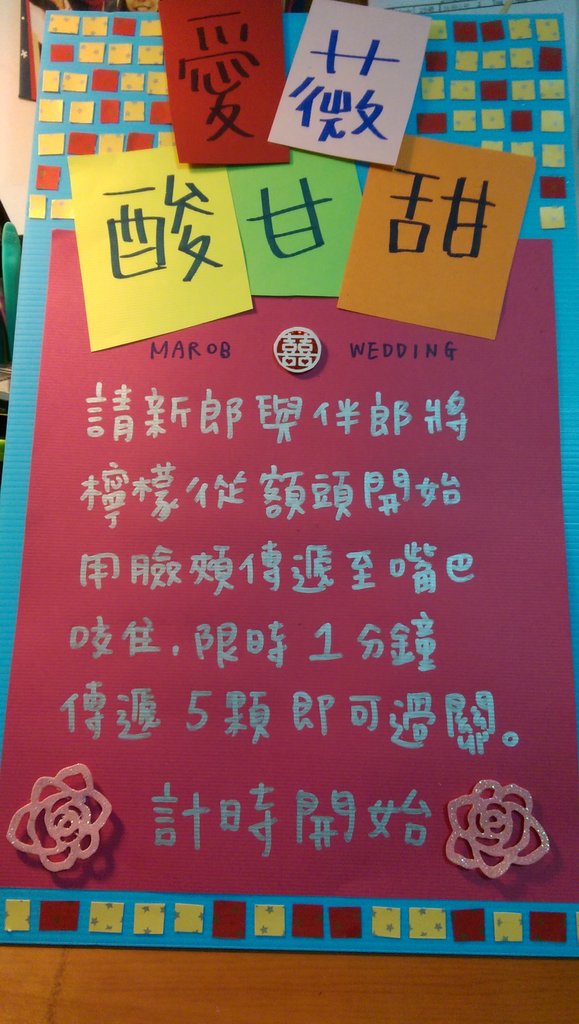 愛薇
酸甘甜
MAROB 囍 WEDDING
請新郎與伴郎將
檸檬從額頭開始
用臉頰傳遞至嘴巴
咬住，限時1分鐘
傳遞5顆即可過關。
計時開始